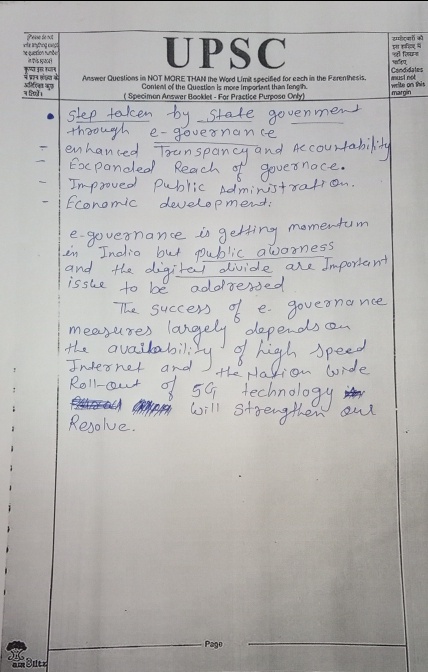 (Please do not
write anything except
the question number
in this space)
कृपया इस स्थान
में प्रश्न संख्या के
अतिरिक्त कुछ
न लिखें।
UPSC
Answer Questions in NOT MORE THAN the Word Limit specified for each in the Parenthesis.
Content of the Question is more Important than length.
( Specimen Answer Booklet - For Practice Purpose Only)
उम्मीदवारों को
इस हाशिए में
नहीं लिखना
चाहिए
Candidates
must not
write on this
margin
• Step taken by State govenment
through e-governance
- enhanced Transpancy and Accountability
- Expanded Reach of governace.
- Improved Public Administration.
- Economic development.
e-governance is getting momentum
in India but public awarness
and the digital divide are Important
issue to be addressed
The success of e- governance
measures largely depends on
the availability of high speed
Internet and the Nation wide
Roll-out of 5G technology
will strengthen our
Resolve.
Page